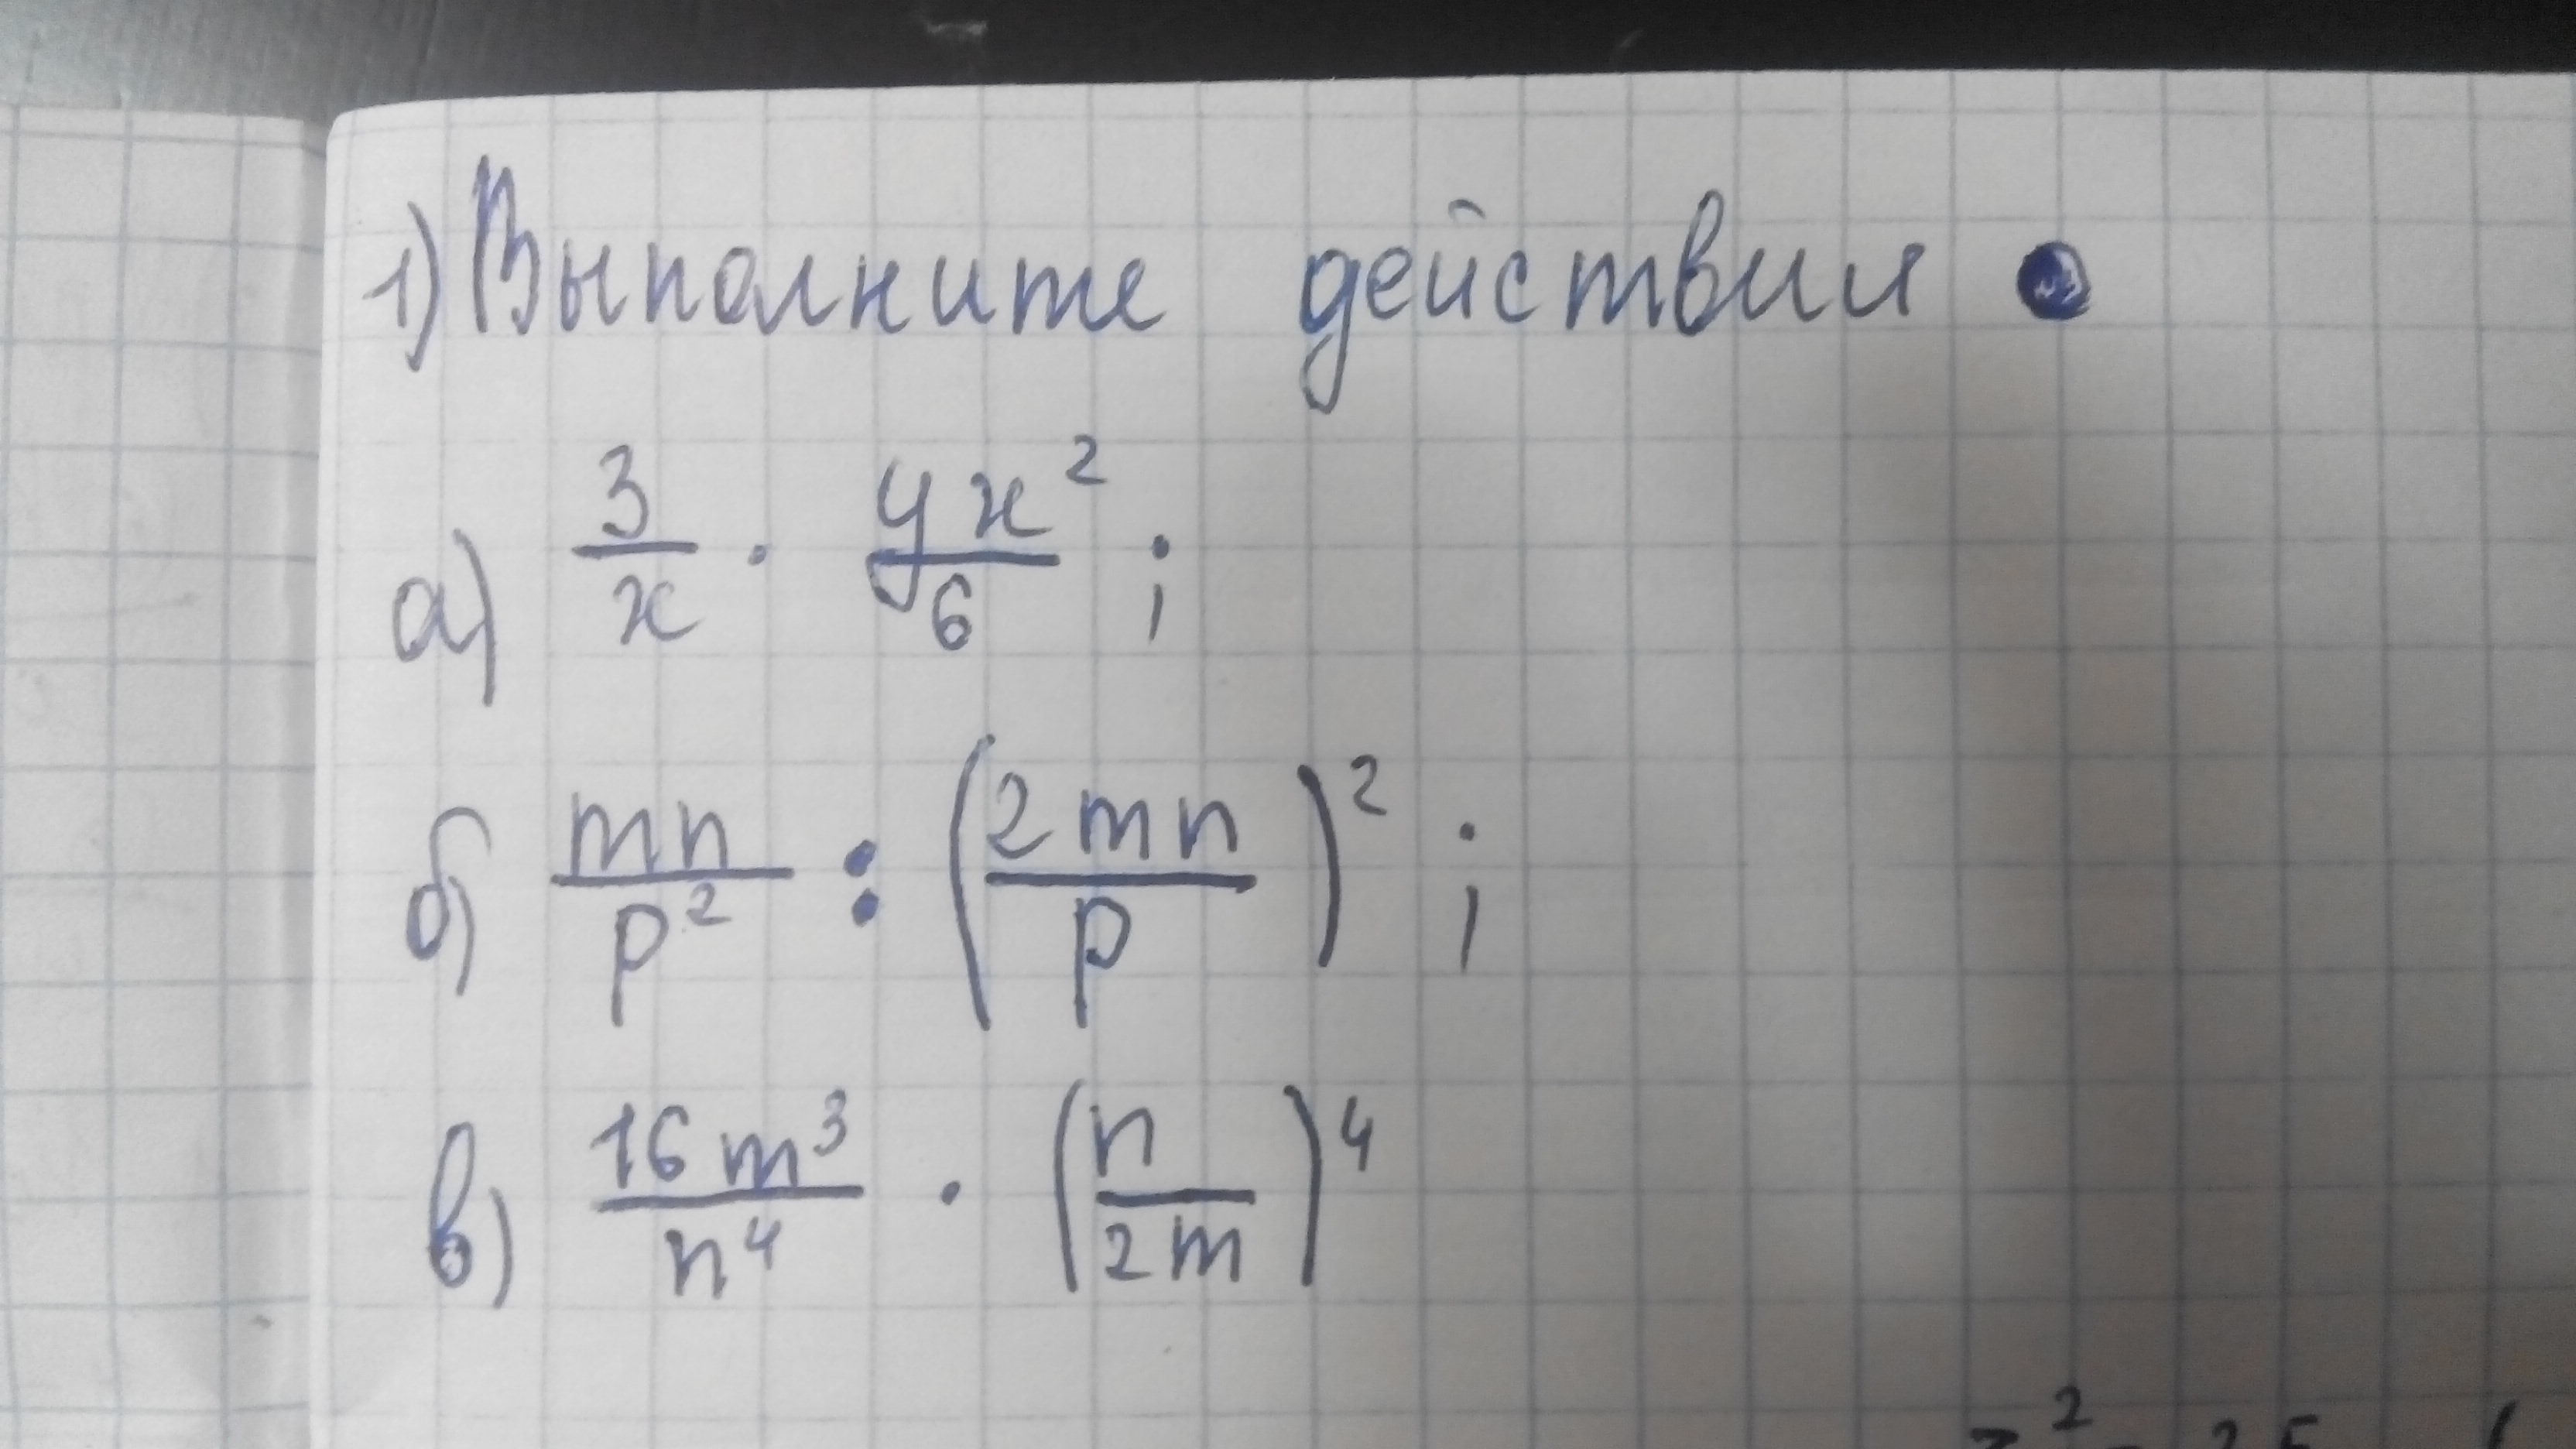 1) Выполните действия
а) 3/x · yx²/6 ;
б) mn/p² : (2mn/p)² ;
в) 16m³/n⁴ · (n/2m)⁴